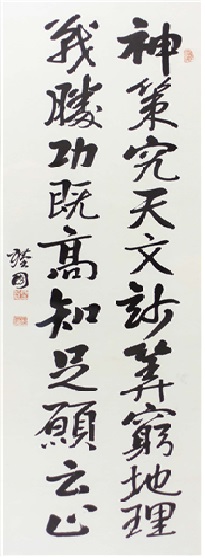 神策究天文妙算窮地理
戰勝功既高知足願云止